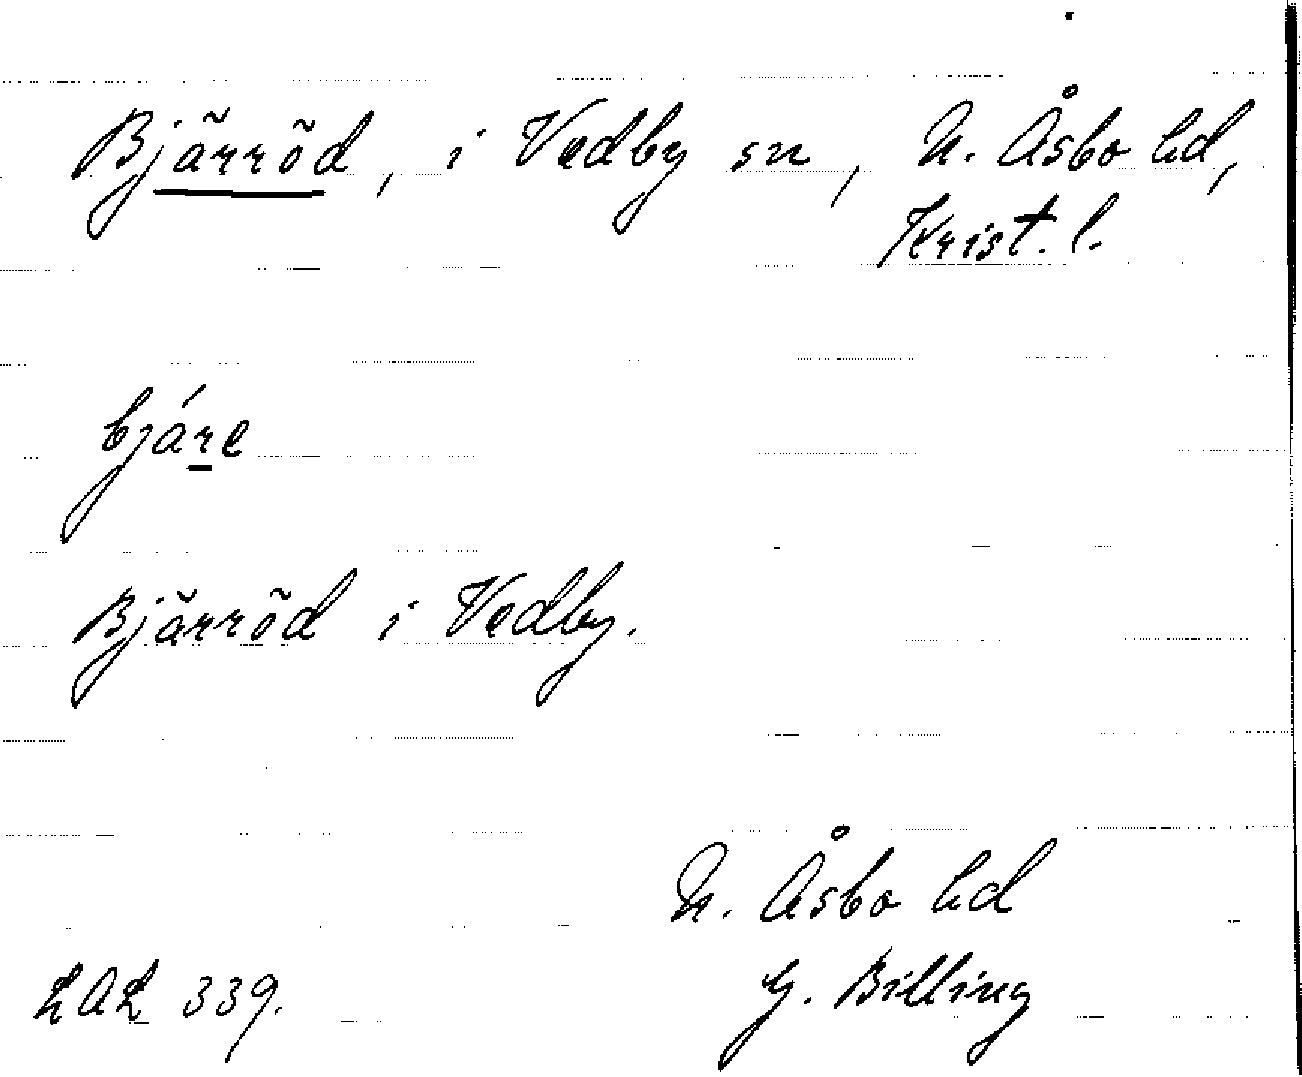 Bjärröd, i Vedby sn, N. Åsbo hd,
Krist. l.
bjáre
Bjärröd i Vedby.
N. Åsbo hd
LAL 339. G. Billing